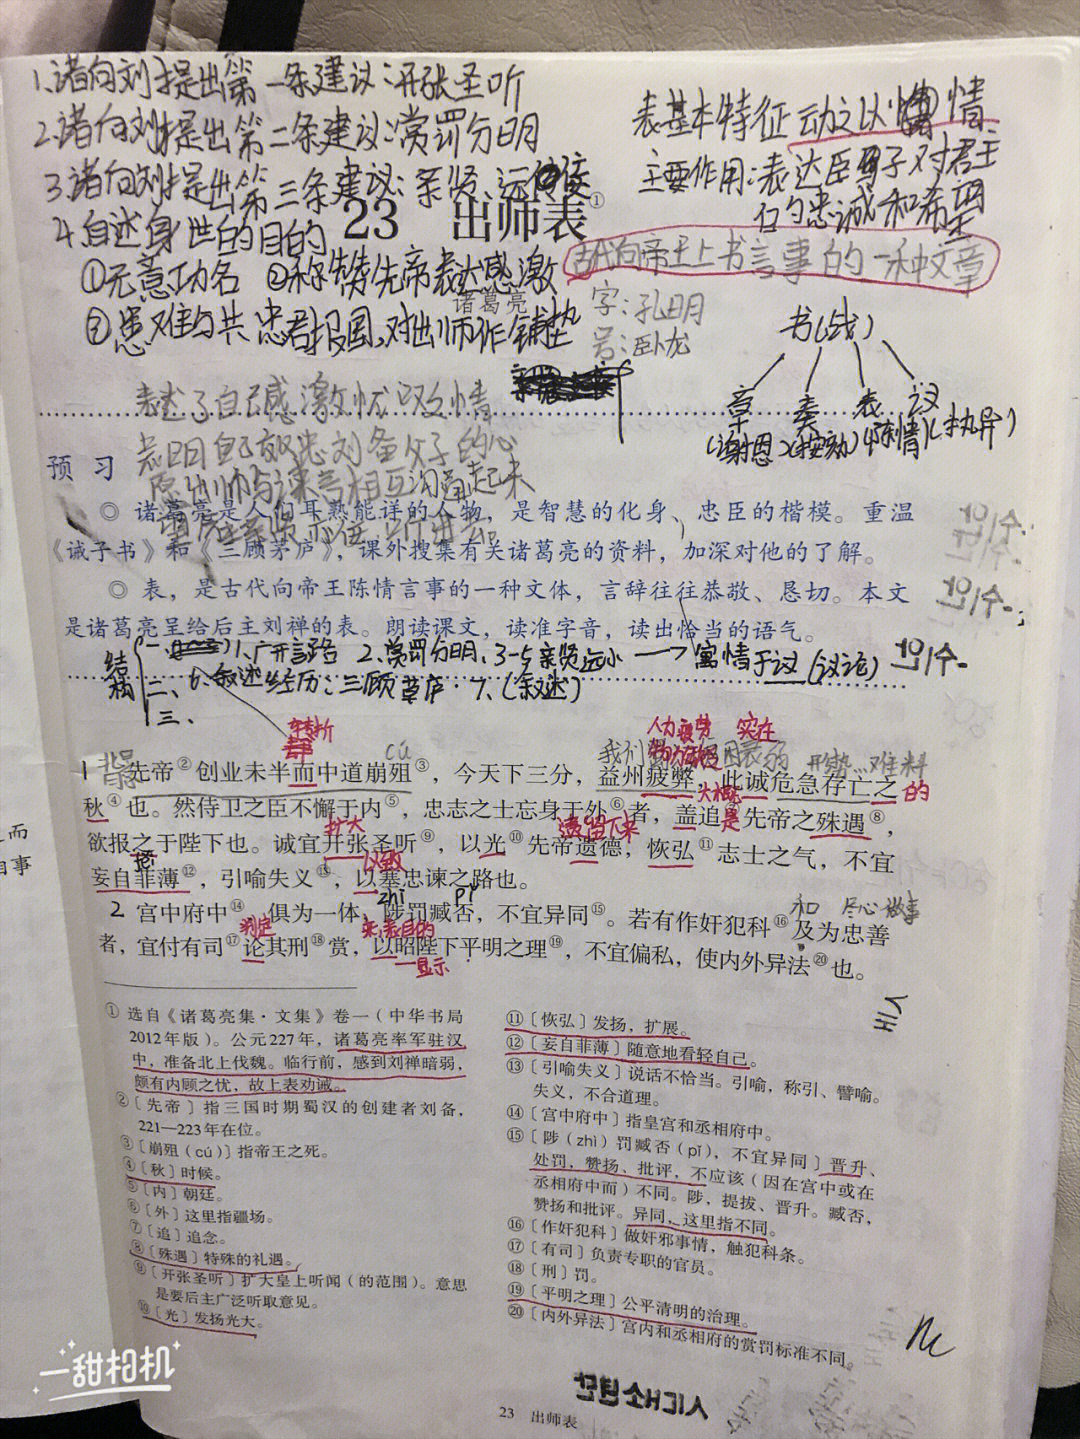 1.诸向刘提出第一条建议:开张圣听
2.诸向刘提出第二条建议:赏罚分明
3.诸向刘提出第三条建议:亲贤远佞
4.自述身世的目的
①无意功名 ②称赞先帝表达感激
③患难与共 忠君报国,对出师作铺垫
表基本特征 动之以情
主要作用:表达臣子对君主
的忠诚和希望
23 出师表①
古代向帝王上书言事的一种文章
诸葛亮
字:孔明
号:卧龙
书(战)
章 奏 表 议
(谢恩)(按劾)(陈情)(执异)
表达了自己感激
表明自己效忠刘备父子的心
预 习
◎ 诸葛亮是人们耳熟能详的人物,是智慧的化身、忠臣的楷模。重温
《诫子书》和《三顾茅庐》,课外搜集有关诸葛亮的资料,加深对他的了解。
◎ 表,是古代向帝王陈情言事的一种文体,言辞往往恭敬、恳切。本文
是诸葛亮呈给后主刘禅的表。朗读课文,读准字音,读出恰当的语气。
结构
一、 1、广开言路 2、赏罚分明、3-5亲贤远小 → 寓情于议(议论)
二、6、叙述经历:三顾草庐·7、(叙述)
三、
人力疲劳 实在
cú
形势 难料
1 先帝②创业未半而中道崩殂③,今天下三分,益州疲弊,此诚危急存亡之的
秋④也。然侍卫之臣不懈于内⑤,忠志之士忘身于外⑥者,盖追⑦先帝之殊遇⑧,
大概 是
扩大 遗留下来
欲报之于陛下也。诚宜开张圣听⑨,以光⑩先帝遗德,恢弘⑪志士之气,不宜
以致
妄自菲薄⑫,引喻失义⑬,以塞忠谏之路也。
zhì pǐ
2 宫中府中⑭,俱为一体,陟罚臧否,不宜异同⑮。若有作奸犯科⑯及为忠善
判定 来,表目的 和 尽心做事
者,宜付有司⑰论其刑⑱赏,以昭陛下平明之理⑲,不宜偏私,使内外异法⑳也。
显示
① 选自《诸葛亮集·文集》卷一(中华书局
2012年版)。公元227年,诸葛亮率军驻汉
中,准备北上伐魏。临行前,感到刘禅暗弱,
颇有内顾之忧,故上表劝诫。
②〔先帝〕指三国时期蜀汉的创建者刘备,
221—223年在位。
③〔崩殂(cú)〕指帝王之死。
④〔秋〕时候。
⑤〔内〕朝廷。
⑥〔外〕这里指疆场。
⑦〔追〕追念。
⑧〔殊遇〕特殊的礼遇。
⑨〔开张圣听〕扩大皇上听闻(的范围)。意思
是要后主广泛听取意见。
⑩〔光〕发扬光大。
⑪〔恢弘〕发扬,扩展。
⑫〔妄自菲薄〕随意地看轻自己。
⑬〔引喻失义〕说话不恰当。引喻,称引、譬喻。
失义,不合道理。
⑭〔宫中府中〕指皇宫和丞相府中。
⑮〔陟(zhì)罚臧否(pǐ),不宜异同〕晋升、
处罚,赞扬、批评,不应该(因在宫中或在
丞相府中而)不同。陟,提拔、晋升。臧否,
赞扬和批评。异同,这里指不同。
⑯〔作奸犯科〕做奸邪事情,触犯科条。
⑰〔有司〕负责专职的官员。
⑱〔刑〕罚。
⑲〔平明之理〕公平清明的治理。
⑳〔内外异法〕宫内和丞相府的赏罚标准不同。
23 出师表
一甜相机